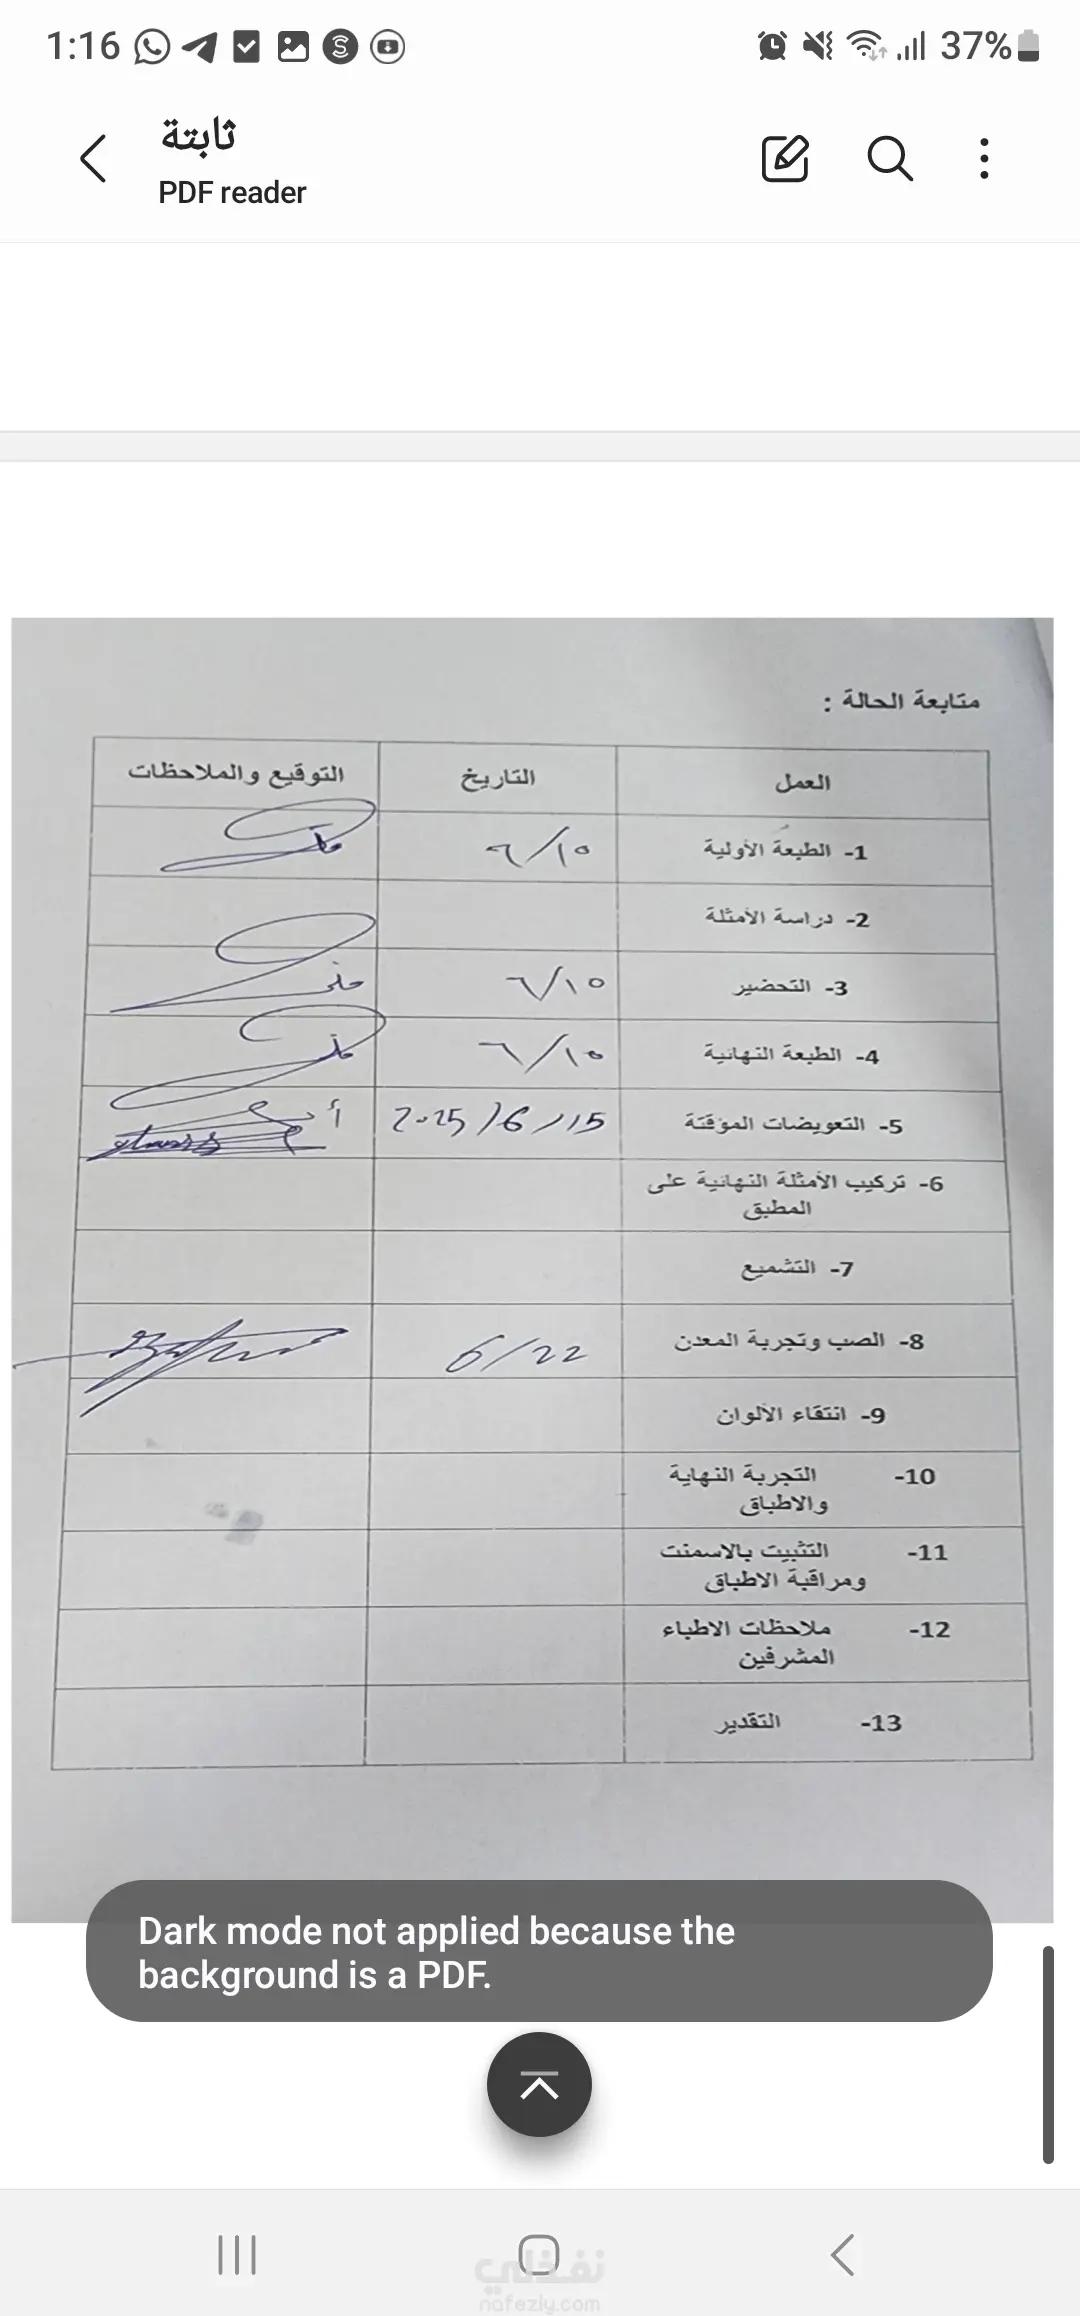 1:16
37%
ثابتة
PDF reader
متابعة الحالة :
العمل التاريخ التوقيع والملاحظات
1- الطبعة الأولية ٦/١٥
2- دراسة الأمثلة
3- التحضير ٦/١٥
4- الطبعة النهائية ٦/١٥
5- التعويضات المؤقتة 2025/6/15
6- تركيب الأمثلة النهائية على
المطبق
7- التشميع
8- الصب وتجربة المعدن 6/22
9- انتقاء الألوان
10- التجربة النهاية
والاطباق
11- التثبيت بالاسمنت
ومراقبة الاطباق
12- ملاحظات الاطباء
المشرفين
13- التقدير
Dark mode not applied because the
background is a PDF.
نفذلي
nafezly.com